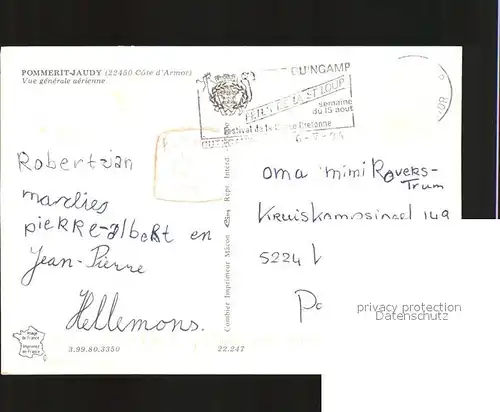 POMMERIT-JAUDY (22450 Côte d'Armor)
Vue générale aérienne
GUINGAMP
FETES DE LA ST LOUP
semaine
du 15 aout
Festival de la Danse Bretonne
Robertzian
marlies
pierre-albert en
Jean-Pierre
Hellemons.
Combier Imprimeur Mâcon
Repr. Interd.
oma mimi Rovers-
Trum
Kruiskampsingel 149
5224
privacy protection
Datenschutz
Image
de France
Imprimée
en France
3.99.80.3350
22.247